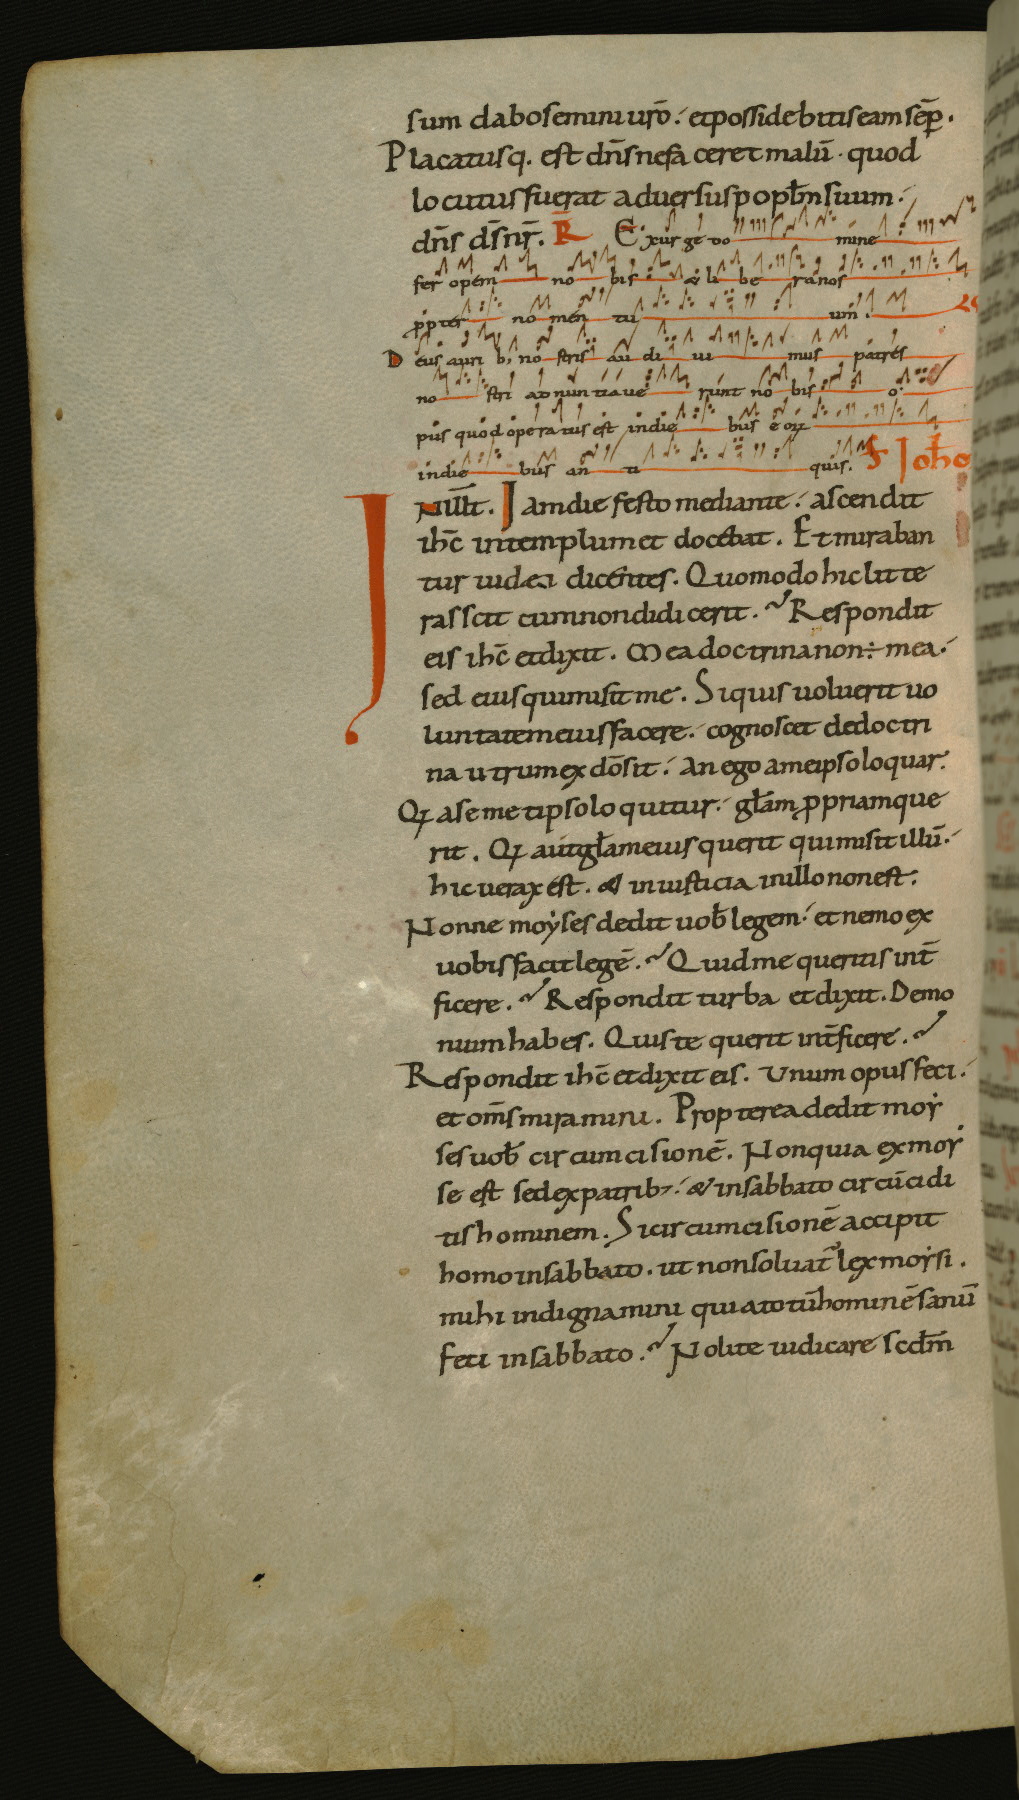 sum dabo semini urō. et possidebitis eam semp̄.
Placatusq. est dn̄s ne faceret malū. quod
locutus fuerat adversus popłm suum.
dn̄s ds̄ nr̄. R̄ Exurge do mine
fer opem no bis & li be ra nos
ꝓpter no men tu um.
Deus auri b; no stris au di ui mus patres
no stri adnuntiaue runt no bis o
pus quod operatus est indie bus eoꝝ
indie bus an ti quis. S Ioħe
N illt. Iam die festo mediante. ascendit
ih̄c in templum et docebat. Et miraban
tur iudęi dicentes. Quomodo hic litte
ras scit cum non didicerit. Respondit
eis ih̄c et dixit. Mea doctrina non ÷ mea.
sed eius qui misit me. Si quis uoluerit uo
luntatem eius facere. cognoscet de doctri
na utrum ex dō sit. an ego a me ipso loquar.
Qi a semetipso loquitur. głam ꝓpriam que
rit. Qi aut głam eius querit qui misit illū.
hic uerax est. & iniusticia in illo non est.
Nonne moẏses dedit uob̄ legem. et nemo ex
uobis facit legē. Quid me queritis int̄
ficere. Respondit turba et dixit. Demo
nium habes. Quis te querit int̄ficere.
Respondit ih̄c et dixit eis. Unum opus feci.
et om̄s miramini. Propterea dedit moẏ
ses uob̄ circumcisionē. Non quia ex moẏ
se est sed ex patrib;. & in sabbato circūcidi
tis hominem. Si circumcisionē accipit
homo in sabbato. ut non soluat̄ lex moẏsi.
mihi indignamini quia totū hominē sanū
feci in sabbato. Nolite iudicare scd̄m